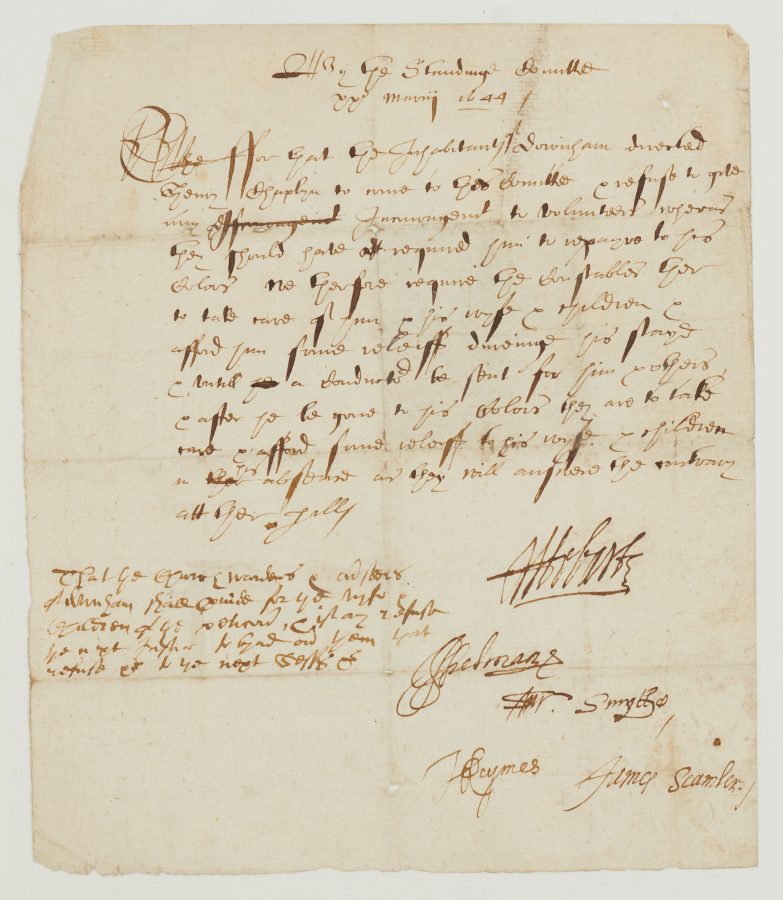 By the Standinge Comitte
xx Marcij 1644
ffor that the Inhabitants Downham directed
Henry Chaplyn to come to this Comitte & refuse to give
any Incouragent to volunteers wheras
they should have required him to repayre to his
Colors we therfore require the Constables ther
to take care of him & his wyfe & children &
afford him some releiff dureinge his staye
& untill a Conducter be sent for him & others
& after he be gone to his Colors they are to take
care & afford some releiff to his wyfe & children
in his absence as they will answere the contrary
att ther pills
That ye Church wardens &
of Downham shall pvide for ye wyfe &
Children of ye & if any refuse
ye next Justice to bynd ov them that
refuse to ye next Sess
Spelman
Smythe
Heymes James Scambler